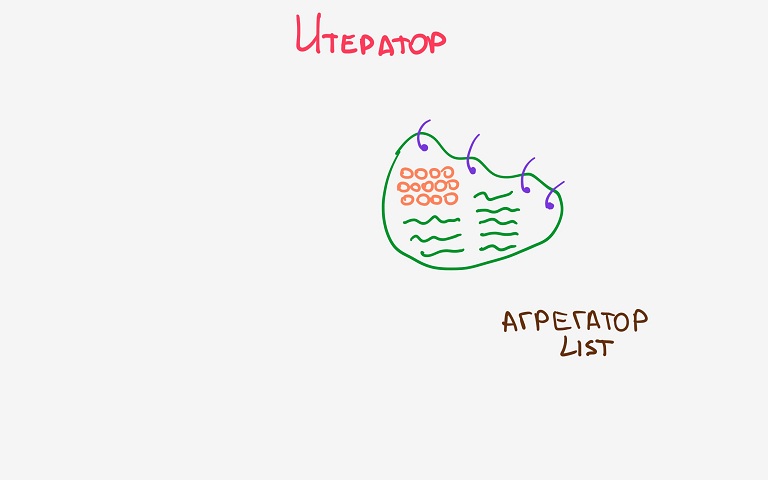 Итератор
АГРЕГАТОР
LIST